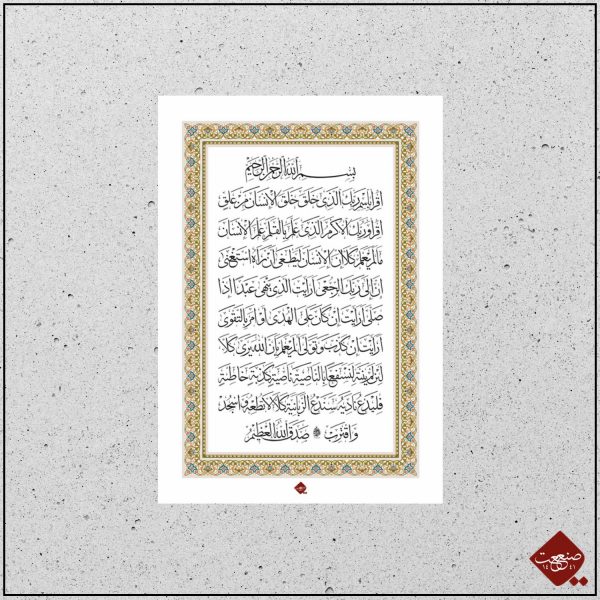 بسم الله الرحمن الرحيم
اقرأ باسم ربك الذي خلق خلق الإنسان من علق
اقرأ وربك الأكرم الذي علم بالقلم علم الإنسان
ما لم يعلم كلا إن الإنسان ليطغى أن رآه استغنى
إن إلى ربك الرجعى أرأيت الذي ينهى عبدا إذا
صلى أرأيت إن كان على الهدى أو أمر بالتقوى
أرأيت إن كذب وتولى ألم يعلم بأن الله يرى كلا
لئن لم ينته لنسفعا بالناصية ناصية كاذبة خاطئة
فليدع ناديه سندع الزبانية كلا لا تطعه واسجد
واقترب صدق الله العظيم